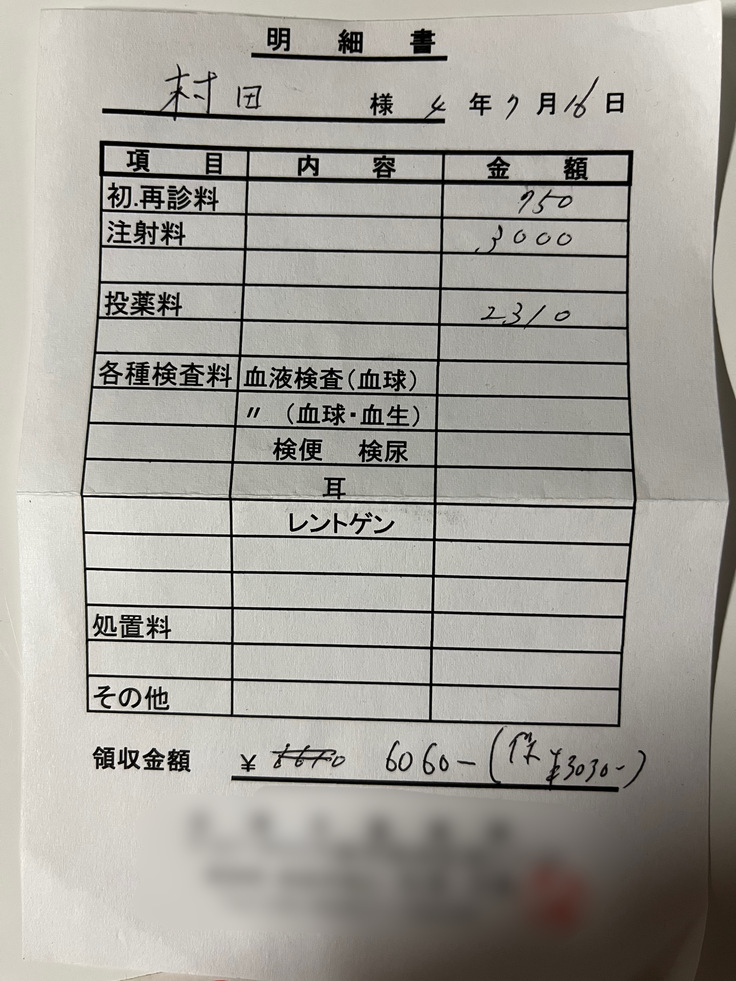 明細書
村田 様 4年7月16日
項目 内容 金額
初.再診料 750
注射料 3000
投薬料 2310
各種検査料 血液検査(血球)
〃 (血球・血生)
検便 検尿
耳
レントゲン
処置料
その他
領収金額 ¥ 6060-( ¥3030-)